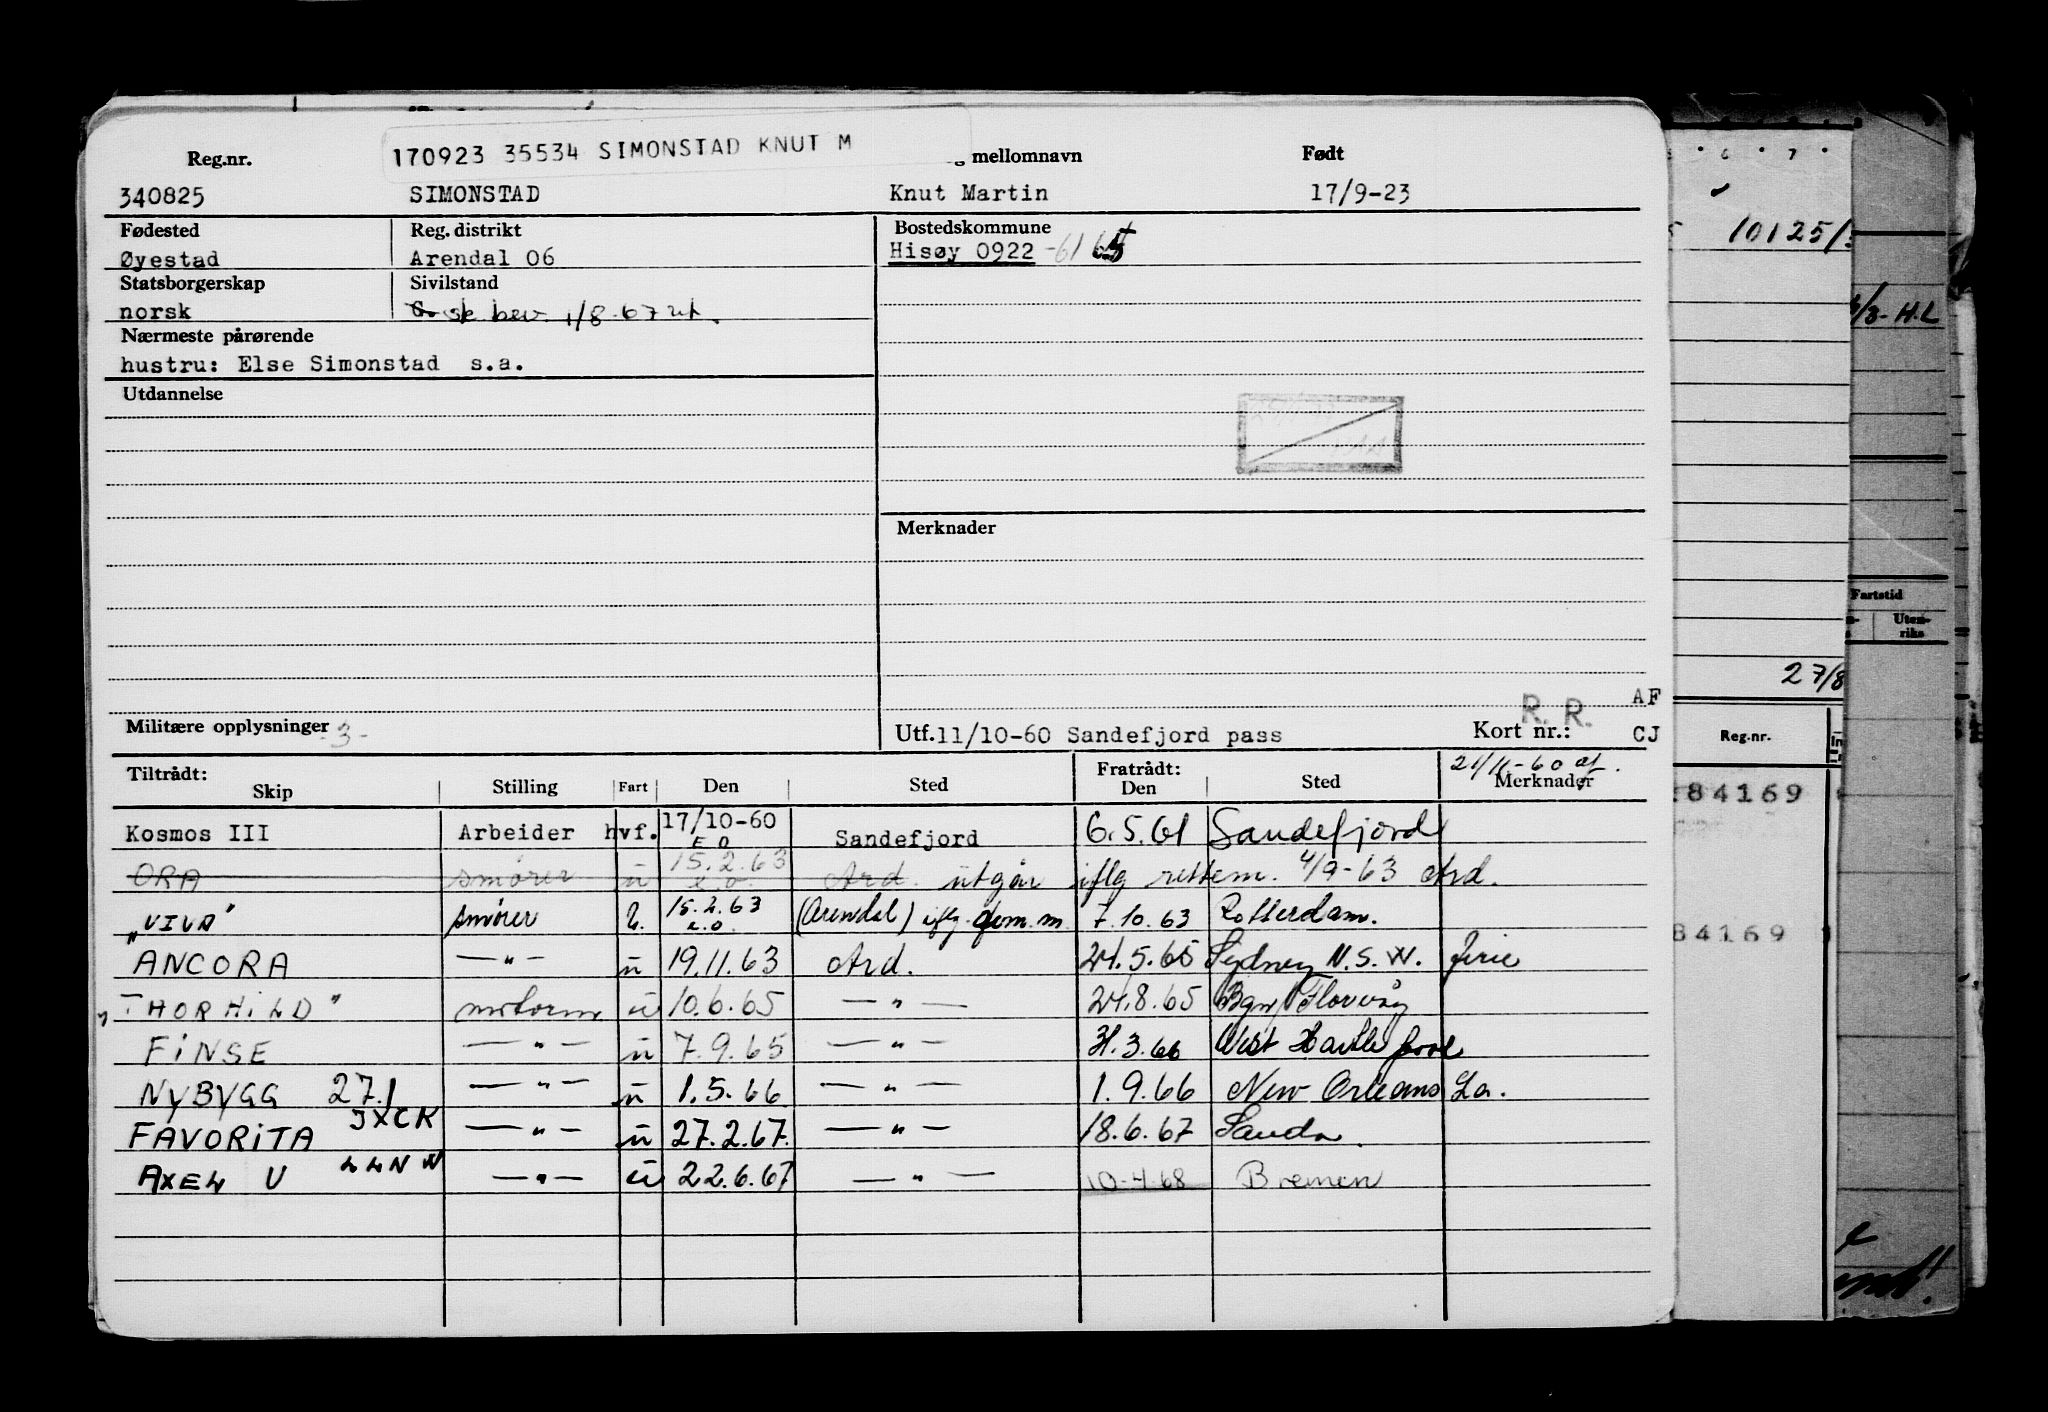 170923 35534 SIMONSTAD KNUT M
Reg.nr. mellomnavn Født
340825 SIMONSTAD Knut Martin 17/9-23
Fødested Reg. distrikt Bostedskommune
Øyestad Arendal 06 Hisøy 0922 -61
Statsborgerskap Sivilstand
norsk bev. 1/8-67
Nærmeste pårørende
hustru: Else Simonstad s.a.
Utdannelse
Merknader
R. R. AF
Militære opplysninger -3- Utf.11/10-60 Sandefjord pass Kort nr.: CJ
21/11-60
Tiltrådt: Skip Stilling Fart Den Sted Fratrådt: Den Sted Merknader
Kosmos III Arbeider hvf. 17/10-60 Sandefjord 6.5.61 Sandefjord
E O
ORA smører u 15.2.63 Ard. utgår iflg rettem. 4/9-63 Ard.
e.o.
"VIVA" smører u. 15.2.63 (Arendal) iflg. gem.m. 7.10.63 Rotterdam.
e.o.
ANCORA —"— u 19.11.63 Ard. 24.5.65 Sydney N.S.W. ferie
"THORHILD" motorm u 10.6.65 —"— 24.8.65 Bgn/Florvåg
FINSE —"— u 7.9.65 —"— 31.3.66 West Hartlepool
NYBYGG 27.1 —"— u 1.5.66 —"— 1.9.66 New Orleans La.
FAVORITA JXCK —"— u 27.2.67. —"— 18.6.67 Sauda.
AXEL U LLNW —"— u 22.6.67 —"— 10-4-68 Bremen
6 7
10125/
/3- H.L
Fartstid
Uten-
riks
27/8
Reg.nr.
84169
84169